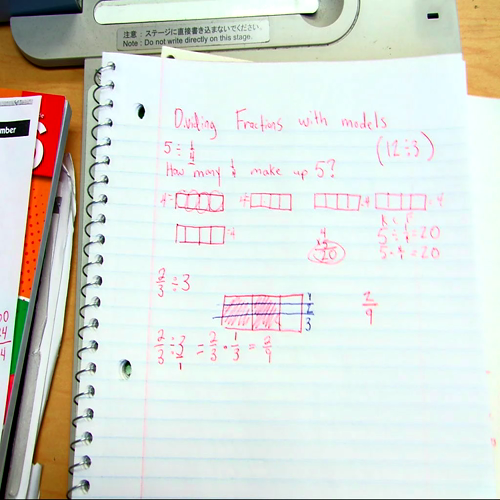 注意：ステージに直接書き込まないでください。
Note : Do not write directly on this stage.
mber
Dividing Fractions with models
5 ÷ 1/4
(12 ÷ 3)
How many 1/4 make up 5?
4 4 4 4
4
K C F
4
20
5/1 ÷ 1/4 = 20
5 · 4 = 20
2/3 ÷ 3
1
2
3
2/9
2/3 ÷ 3/1 = 2/3 · 1/3 = 2/9